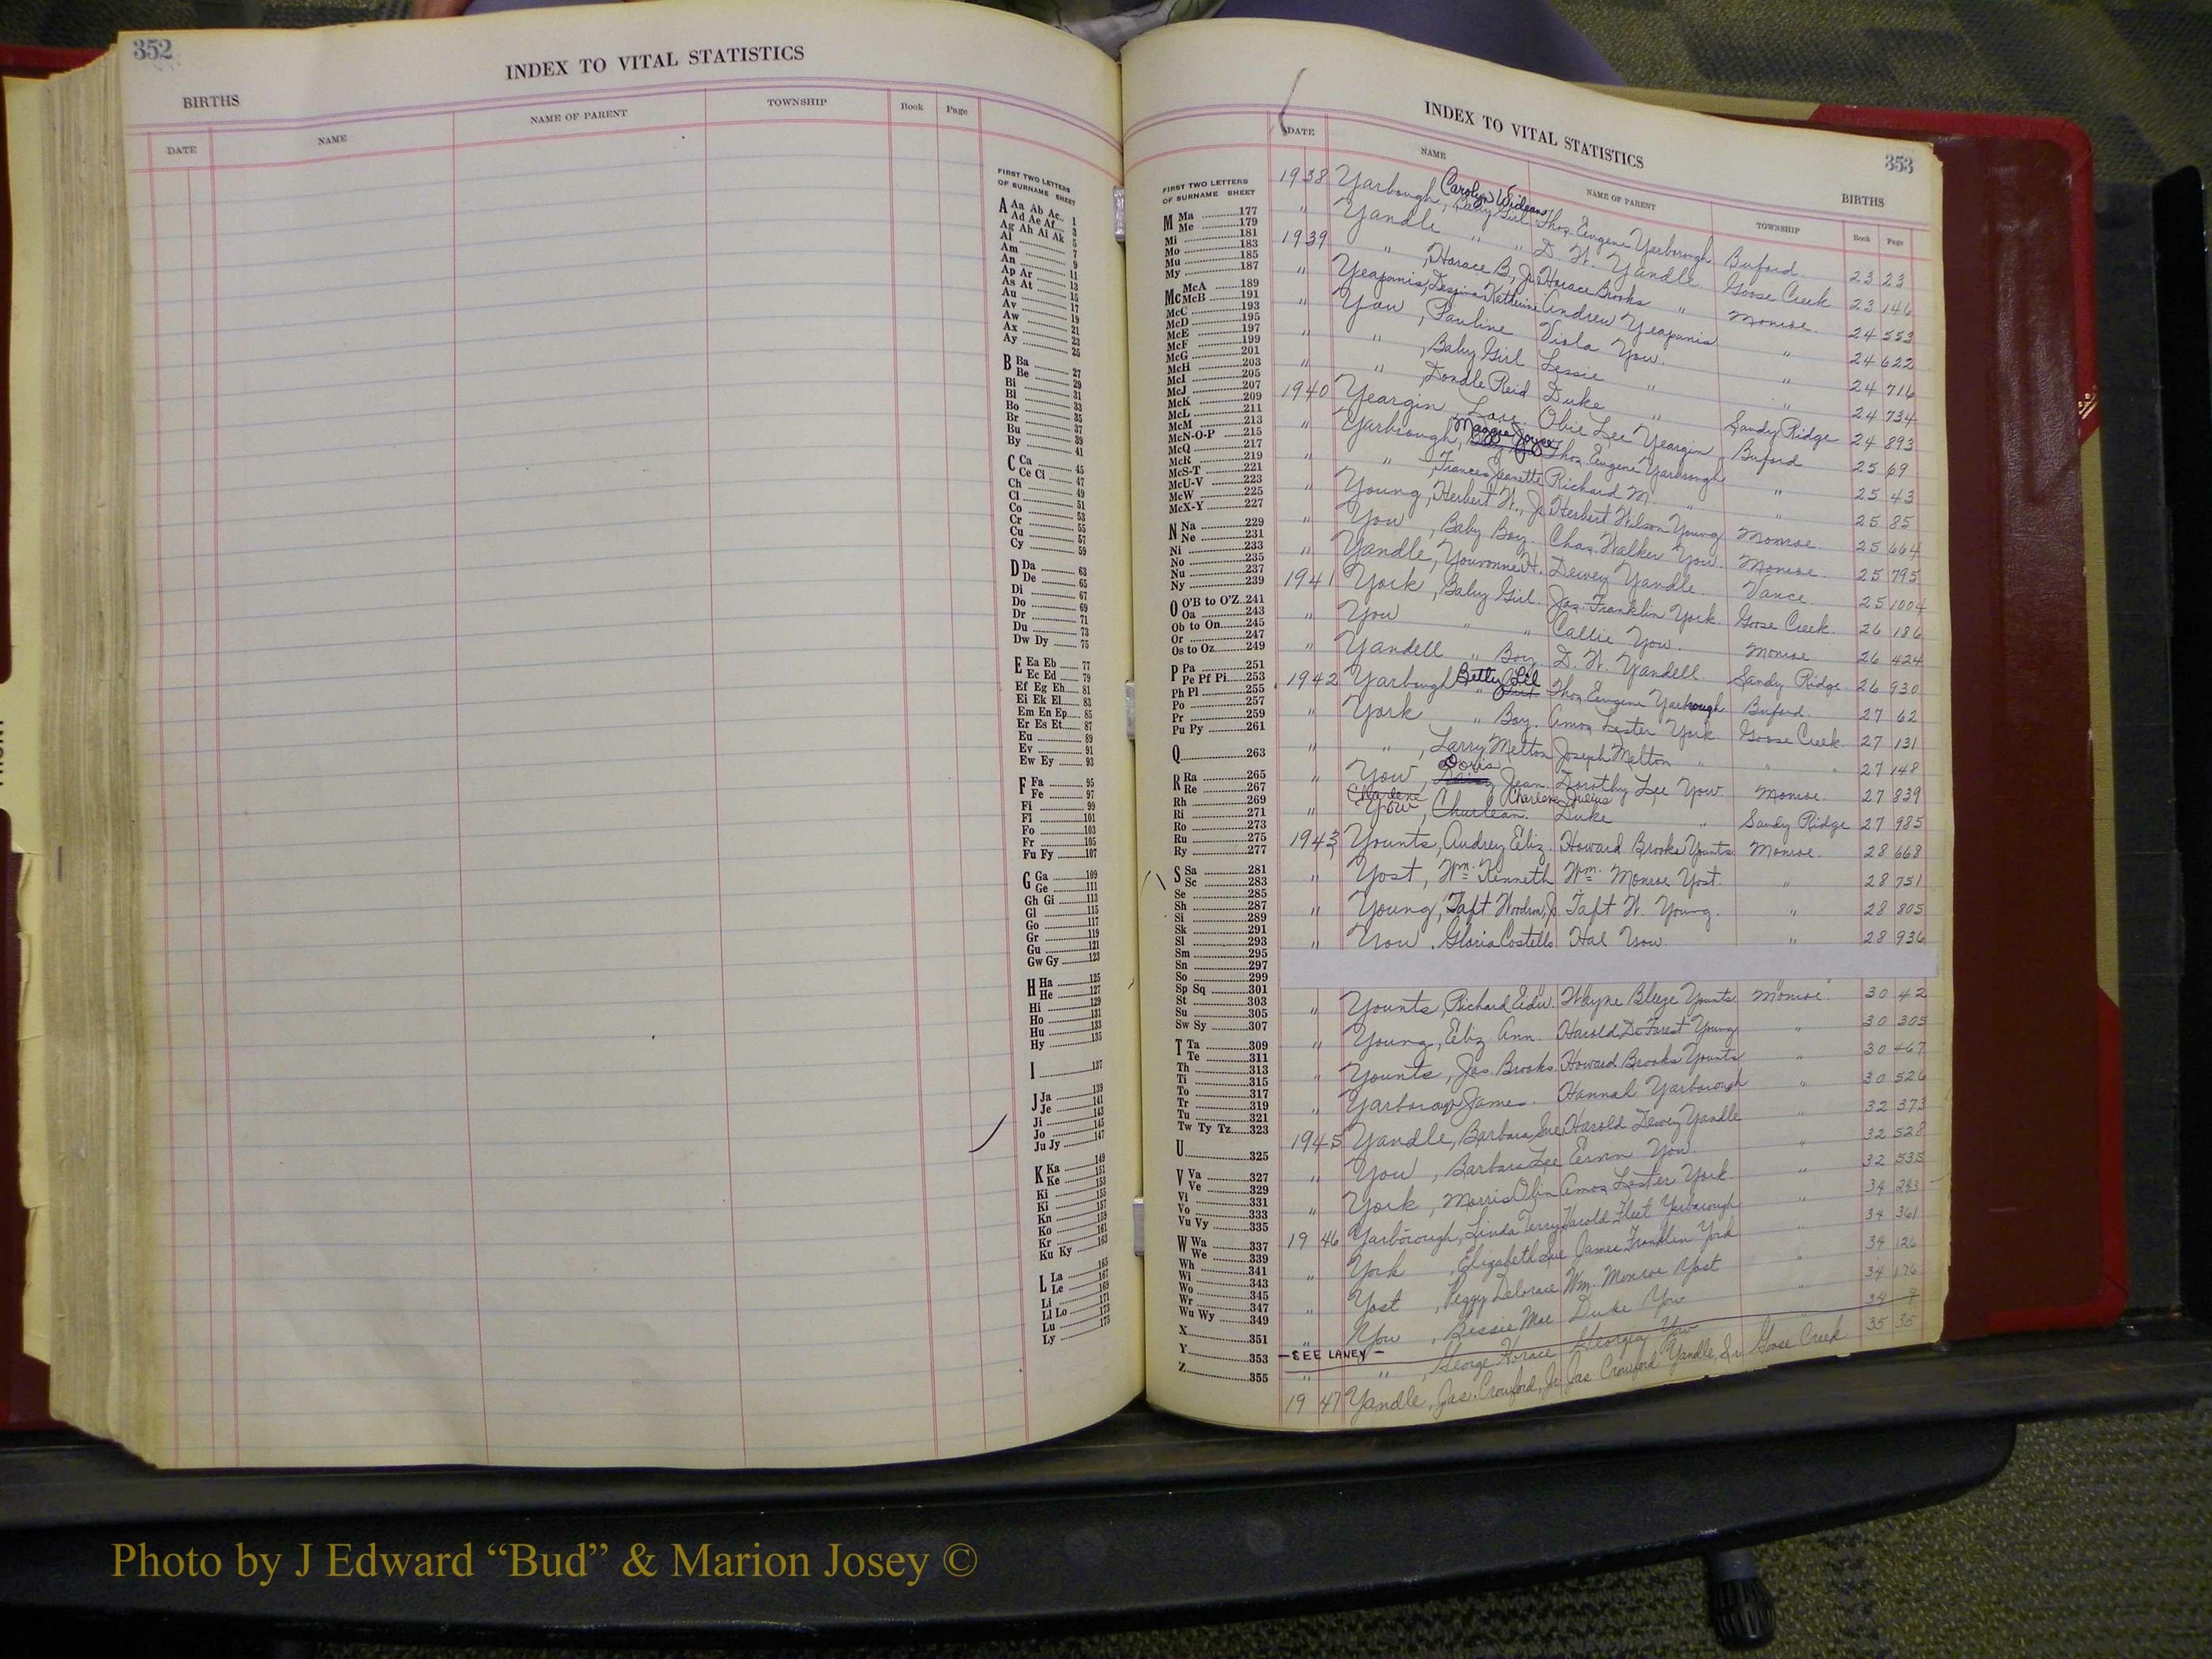 352
INDEX TO VITAL STATISTICS
BIRTHS
DATE NAME NAME OF PARENT TOWNSHIP Book Page
FIRST TWO LETTERS
OF SURNAME SHEET
A Aa Ab Ac.. 1
Ad Ae Af.... 3
Ag Ah Ai Ak 5
Al ........ 7
Am ........ 9
An ........ 11
Ap Ar ........ 13
As At ........ 15
Au ........ 17
Av ........ 19
Aw ........ 21
Ax ........ 23
Ay ........ 25
B Ba ........ 27
Be ........ 29
Bi ........ 31
Bl ........ 33
Bo ........ 35
Br ........ 37
Bu ........ 39
By ........ 41
C Ca ........ 45
Ce Ci ........ 47
Ch ........ 49
Cl ........ 51
Co ........ 53
Cr ........ 55
Cu ........ 57
Cy ........ 59
D Da ........ 63
De ........ 65
Di ........ 67
Do ........ 69
Dr ........ 71
Du ........ 73
Dw Dy ........ 75
E Ea Eb ........ 77
Ec Ed ........ 79
Ef Eg Eh ........ 81
Ei Ek El ........ 83
Em En Ep ........ 85
Er Es Et ........ 87
Eu ........ 89
Ev ........ 91
Ew Ey ........ 93
F Fa ........ 95
Fe ........ 97
Fi ........ 99
Fl ........ 101
Fo ........ 103
Fr ........ 105
Fu Fy ........ 107
G Ga ........ 109
Ge ........ 111
Gh Gi ........ 113
Gl ........ 115
Go ........ 117
Gr ........ 119
Gu ........ 121
Gw Gy ........ 123
H Ha ........ 125
He ........ 127
Hi ........ 129
Ho ........ 131
Hu ........ 133
Hy ........ 135
I ........ 137
J Ja ........ 139
Je ........ 141
Ji ........ 143
Jo ........ 145
Ju Jy ........ 147
K Ka ........ 149
Ke ........ 151
Ki ........ 153
Ki ........ 155
Kn ........ 157
Ko ........ 159
Kr ........ 161
Ku Ky ........ 163
L La ........ 165
Le ........ 167
Li ........ 169
Ll Lo ........ 171
Lu ........ 173
Ly ........ 175
FIRST TWO LETTERS
OF SURNAME SHEET
M Ma ........ 177
Me ........ 179
Mi ........ 181
Mo ........ 183
Mu ........ 185
My ........ 187
Mc McA ........ 189
McB ........ 191
McC ........ 193
McD ........ 195
McE ........ 197
McF ........ 199
McG ........ 201
McH ........ 203
McI ........ 205
McJ ........ 207
McK ........ 209
McL ........ 211
McM ........ 213
McN-O-P ........ 215
McQ ........ 217
McR ........ 219
McS-T ........ 221
McU-V ........ 223
McW ........ 225
McX-Y ........ 227
N Na ........ 229
Ne ........ 231
Ni ........ 233
No ........ 235
Nu ........ 237
Ny ........ 239
O O'B to O'Z..241
Oa ........ 243
Ob to On........245
Or ........ 247
Os to Oz........249
P Pa ........ 251
Pe Pf Pi........253
Ph Pl ........ 255
Po ........ 257
Pr ........ 259
Pu Py ........ 261
Q ........ 263
R Ra ........ 265
Re ........ 267
Rh ........ 269
Ri ........ 271
Ro ........ 273
Ru ........ 275
Ry ........ 277
S Sa ........ 281
Sc ........ 283
Se ........ 285
Sh ........ 287
Si ........ 289
Sk ........ 291
Sl ........ 293
Sm ........ 295
Sn ........ 297
So ........ 299
Sp Sq ........ 301
St ........ 303
Su ........ 305
Sw Sy ........ 307
T Ta ........ 309
Te ........ 311
Th ........ 313
Ti ........ 315
To ........ 317
Tr ........ 319
Tu ........ 321
Tw Ty Tz........323
U ........ 325
V Va ........ 327
Ve ........ 329
Vi ........ 331
Vo ........ 333
Vu Vy ........ 335
W Wa ........ 337
We ........ 339
Wh ........ 341
Wi ........ 343
Wo ........ 345
Wr ........ 347
Wu Wy ........ 349
X ........ 351
Y ........ 353
Z ........ 355
INDEX TO VITAL STATISTICS
353
BIRTHS
DATE NAME NAME OF PARENT TOWNSHIP Book Page
1938 Yarbough, Carolyn Baby Girl Thos. Eugene Yarborough Buford 23 23
" Yandle " " D. W. Yandle Goose Creek 23 146
1939 " , Horace B., Jr. Horace Brooks " Monroe. 24 553
" Yeapanis, Despina Katherine Andrew Yeapanis " 24 622
" Yow , Pauline Viola Yow. " 24 716
" " , Baby Girl Lessie " " 24 734
" " , Dondle Reid Duke " Sandy Ridge 24 893
1940 Yeargin, Obie Lee Yeargin Buford 25 69
" Yarbrough, Maggie Joyce Thos. Eugene Yarbrough " 25 43
" " , Frances Jeanette Richard M. " " 25 85
" Young, Herbert W., Jr. Herbert Wilson Young Monroe. 25 664
" You , Baby Boy. Chas. Walker You. Monroe. 25 795
" Yandle, Youvonne H. Dewey Yandle. Vance 25 1004
1941 York , Baby Girl Jas. Franklin York. Goose Creek. 26 186
" You " " Callie You. Monroe 26 424
" Yandell " Boy. D. W. Yandell. Sandy Ridge. 26 930
1942 Yarbough Betty Lil " Girl Thos. Eugene Yarbrough Buford. 27 62
" York " Boy. Amos Lester York Goose Creek. 27 131
" " , Larry Melton Joseph Melton " " " 27 148
" Yow , Doris Jean Dorothy Lee Yow Monroe. 27 839
Charlene Charlene Julius
" Yow , Charlean. Duke " Sandy Ridge 27 985
1943 Younts, Audrey Eliz. Howard Brooks Younts Monroe. 28 668
" Yost, Wm. Kenneth Wm. Monroe Yost. " 28 751
" Young, Taft Woodrow, Jr. Taft W. Young. " 28 805
" Yow , Gloria Costello Hal Yow. " 28 936
" Younts, Richard Edw. Wayne Bleeze Younts Monroe. 30 42
" Young, Eliz. Ann. Harold DeForest Young " 30 305
" Younts, Jas. Brooks. Howard Brooks Younts " 30 467
" Yarborough James. Hannah Yarborough " 30 526
1945 Yandle, Barbara Sue Harold Dewey Yandle " 32 373
" You , Barbara Lee Ervin You. " 32 528
" York , Morris Olin Amos Lester York 32 535
1946 Yarborough, Linda Terry Harold Fleet Yarborough " 34 243
" York , Elizabeth Sue James Franklin York " 34 361
" Yost , Peggy Delorace Wm. Monroe Yost " 34 126
" Yow , Bessie Mae Duke Yow " 34 176
-SEE LANEY-
" " , George Horace Georgia Yow " 34 9
1947 Yandle, Jas. Crowford, Jr. Jas. Crowford Yandle, Sr. Goose Creek 35 35
Photo by J Edward “Bud” & Marion Josey ©